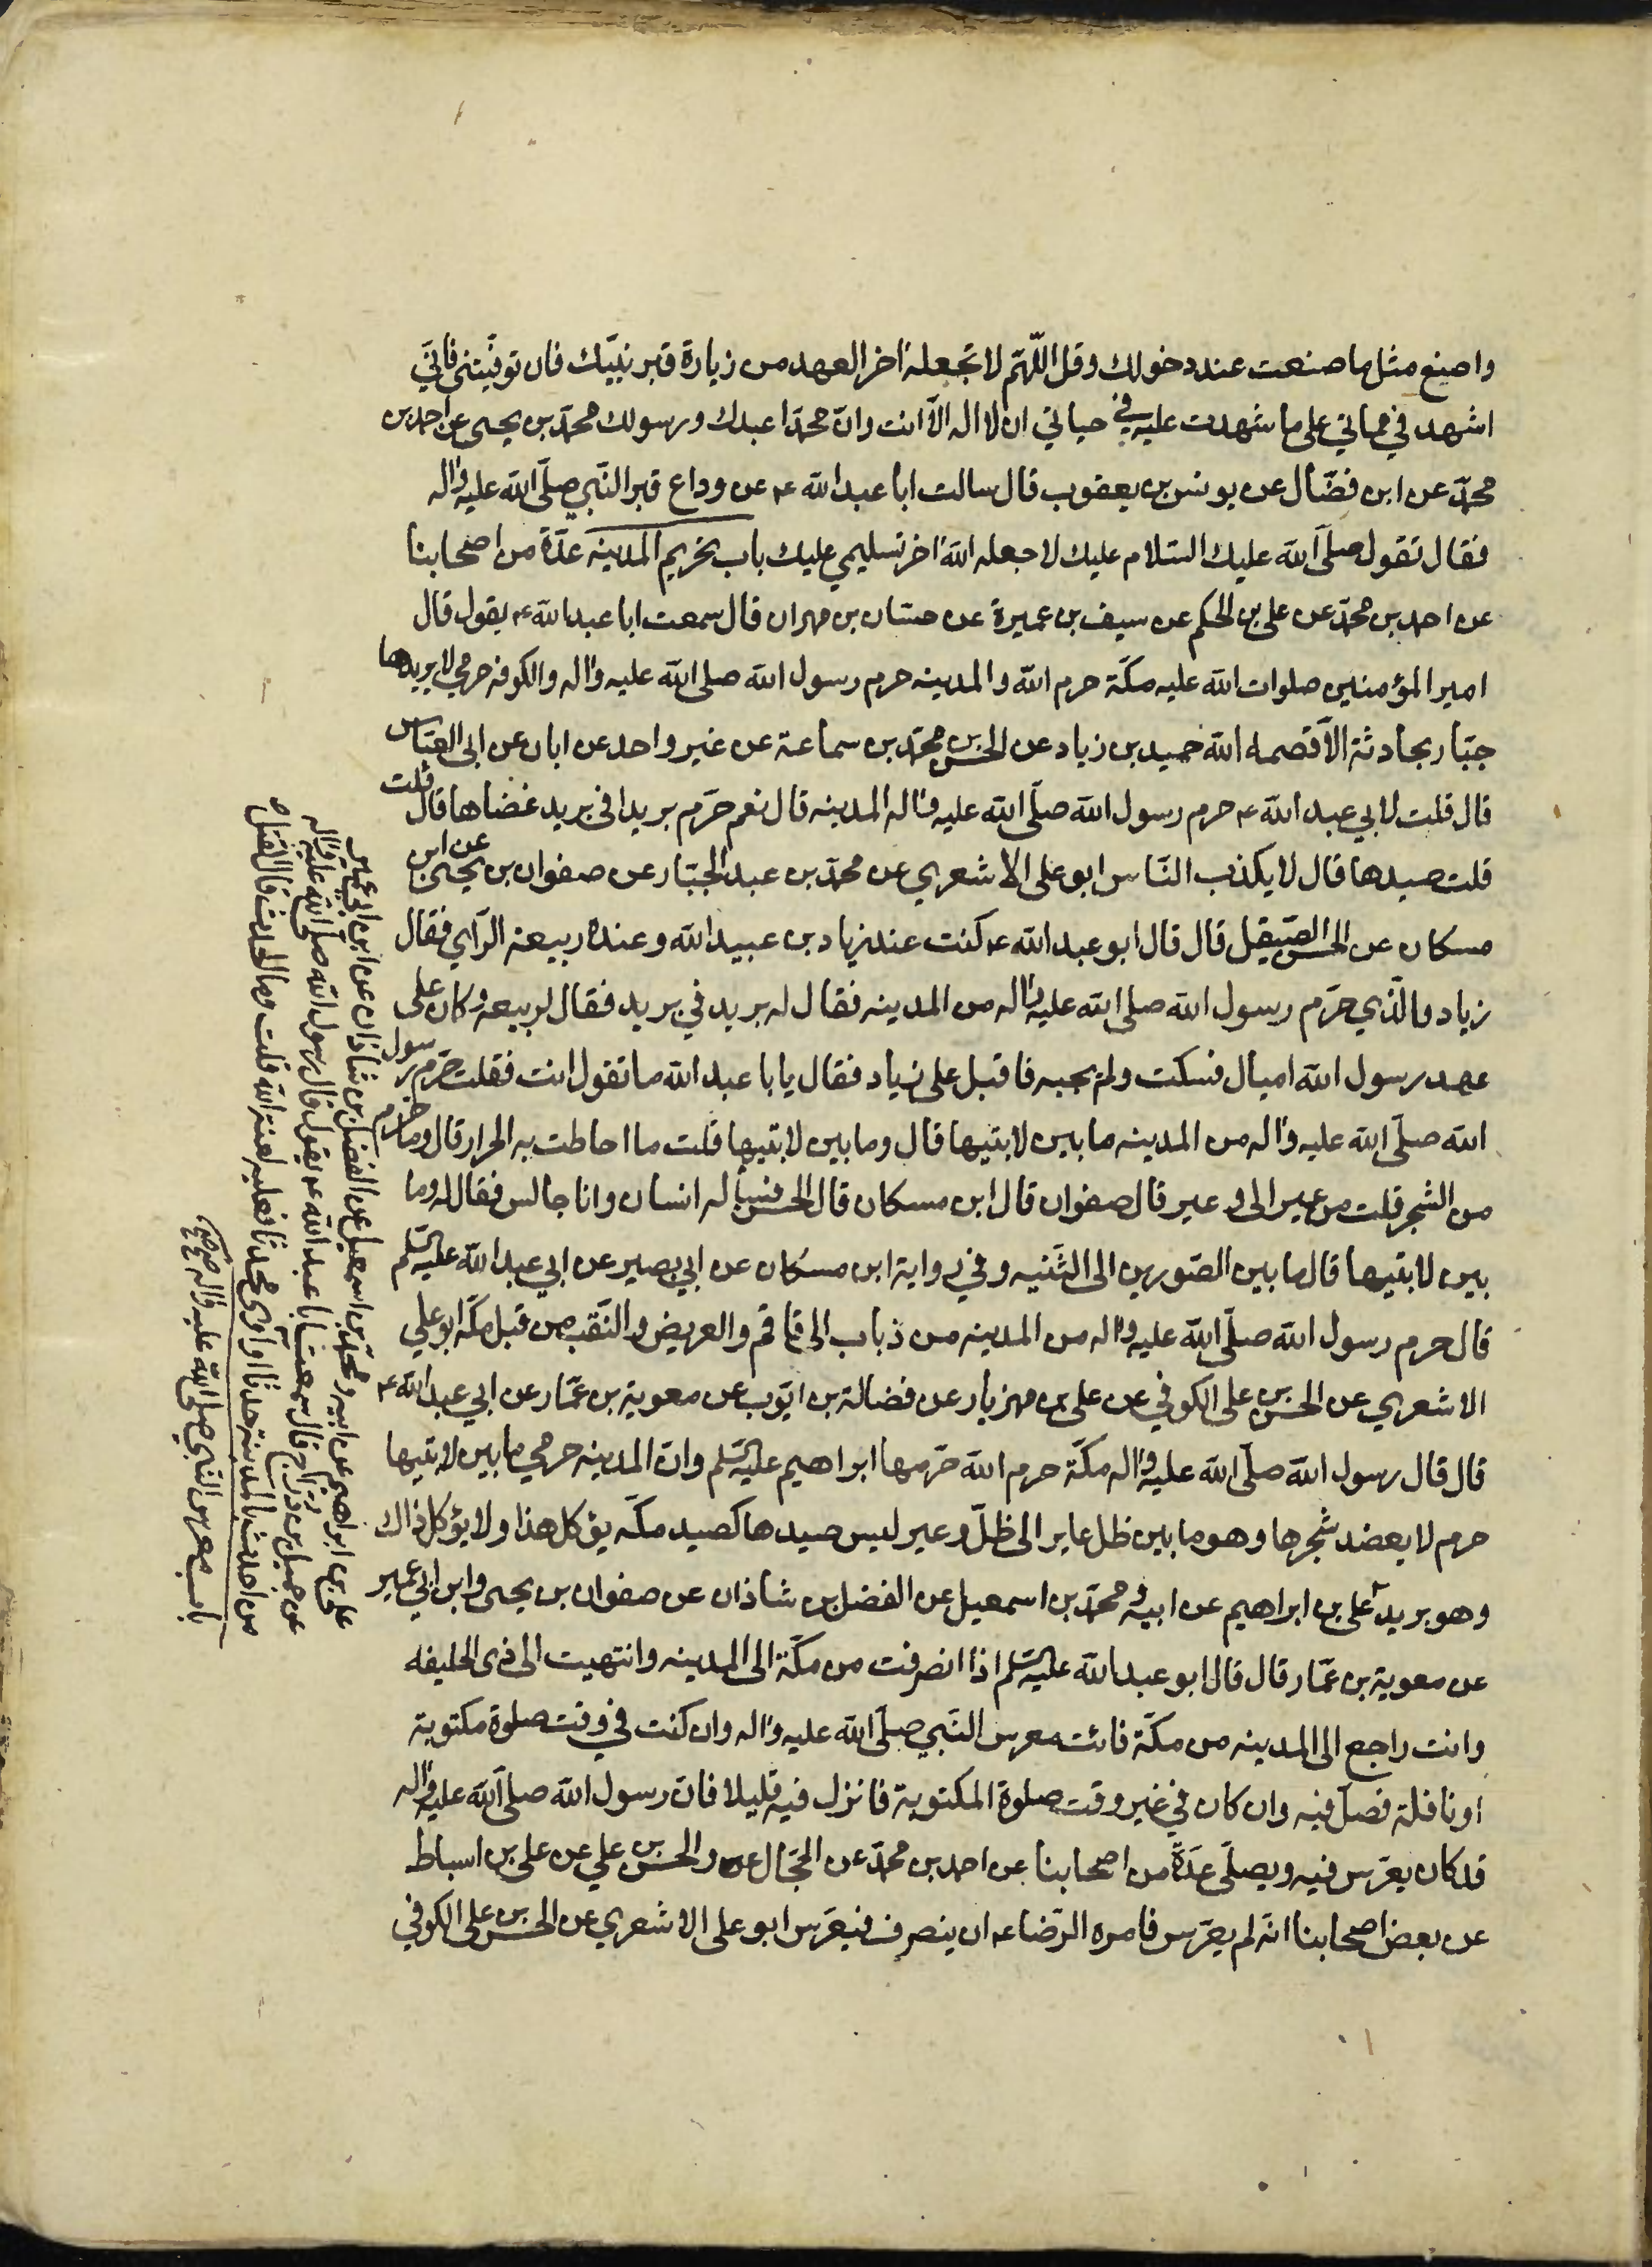 واصنع مثل ما صنعت عند دخولك وقل اللّهمّ لا تجعله اخر العهد من زيارة قبر نبيّك فان توفّيتنى فانّي
اشهد في مماتي على ما شهدت عليه في حياتي ان لا اله الّا انت وانّ محمّدا عبدك ورسولك محمّد بن يحيى عن احمد بن
محمّد عن ابن فضّال عن يونس بن يعقوب قال سالت ابا عبد الله ع عن وداع قبر النّبي صلّى الله عليه واله
فقال تقول صلّى الله عليك السّلام عليك لا جعله الله اخر تسليمي عليك باب تحريم المدينه عدّة من اصحابنا
عن احمد بن محمّد عن علي بن الحكم عن سيف بن عميرة عن حسّان بن مهران قال سمعت ابا عبد الله ع يقول قال
امير المؤمنين صلوات الله عليه مكّة حرم الله والمدينه حرم رسول الله صلى الله عليه واله والكوفه حرمي لا يريدها
جبّار بحادثة الّا قصمه الله حميد بن زياد عن الحسن بن محمّد بن سماعة عن غير واحد عن ابان عن ابى العبّاس
قال قلت لابي عبد الله ع حرم رسول الله صلّى الله عليه واله المدينه قال نعم حرّم بريدا في بريد غضاها قال قلت
قلت صيدها قال لا يكذب النّاس ابو على الاشعري عن محمّد بن عبد الجبّار عن صفوان بن يحيى عن ابن
مسكان عن الحسن الصّيقل قال قال ابو عبد الله ع كنت عند زياد بن عبيد الله وعنده ربيعة الرّاي فقال
زياد ما الّذي حرّم رسول الله صلى الله عليه واله من المدينه فقال له بريد في بريد فقال لربيعه وكان على
عهد رسول الله اميال فسكت ولم يجبه فاقبل على زياد فقال يا با عبد الله ما تقول انت فقلت حرّم رسول
الله صلّى الله عليه واله من المدينه ما بين لابتيها قال وما بين لابتيها قلت ما احاطت به الحرار قال وما حرّم
من الشّجر قلت من عير الى وعير قال صفوان قال ابن مسكان قال الحسن فسأله انسان وانا جالس فقال له وما
بين لابتيها قال ما بين الصّورين الى الثّنيه وفي رواية ابن مسكان عن ابي بصير عن ابي عبد الله عليه السّلم
قال حرم رسول الله صلّى الله عليه واله من المدينه من ذباب الى فاقم والعريض والنّقب من قبل مكّه ابو علي
الاشعري عن الحسن بن على الكوفي عن على بن مهزيار عن فضالة بن ايّوب عن معوية بن عمّار عن ابي عبد الله ع
قال قال رسول الله صلّى الله عليه واله مكّة حرم الله حرّمها ابراهيم عليه السّلم وانّ المدينه حرمي ما بين لابتيها
حرم لا يعضد شجرها وهو ما بين ظل عاير الى ظلّ وعير ليس صيدها كصيد مكّه يؤكل هذا ولا يؤكل ذاك
وهو بريد على بن ابراهيم عن ابيه ومحمّد بن اسمعيل عن الفضل بن شاذان عن صفوان بن يحيى وابن ابي عمير
عن معوية بن عمّار قال قال ابو عبد الله عليه السّلم اذا انصرفت من مكّة الى المدينه وانتهيت الى ذى الحليفه
وانت راجع الى المدينه من مكّة فائت معرس النّبي صلّى الله عليه واله وان كنت في وقت صلوة مكتوبة
او نافلة فصلّ فيه وان كان في غير وقت صلوة المكتوبة فانزل فيه قليلا فانّ رسول الله صلّى الله عليه واله
قد كان يعرّس فيه ويصلّى عدّة من اصحابنا عن احمد بن محمّد عن الحجّال والحسن بن علي عن على بن اسباط
عن بعض اصحابنا انّه لم يعرّس فامره الرّضا ع ان ينصرف فيعرّس ابو على الاشعري عن الحسن بن على الكوفي
على بن ابراهيم عن ابيه ومحمّد بن اسمعيل عن الفضل بن شاذان عن ابن ابي عمير
عن جميل بن درّاج قال سمعت ابا عبد الله ع يقول قال رسول الله صلّى الله عليه واله
من احدث بالمدينة حدثا او آوى محدثا فعليه لعنة الله قلت وما الحدث قال القتل
باب معرس النّبي صلى الله عليه واله